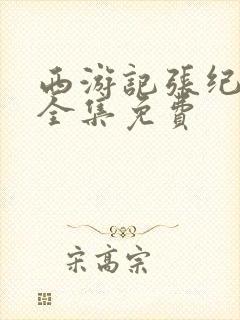 西游記張纪
全集免費
宋高宗